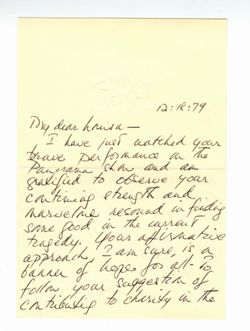 12·18·79
My dear Louisa—
I have just watched your
brave performance on the
Panorama show and am
gratified to observe your
continuing strength and
marvelous resound in finding
some good in the current
tragedy. Your affirmative
approach, I am sure, is a
banner of hopes for all. To
follow your suggestion of
contributing to charity in the